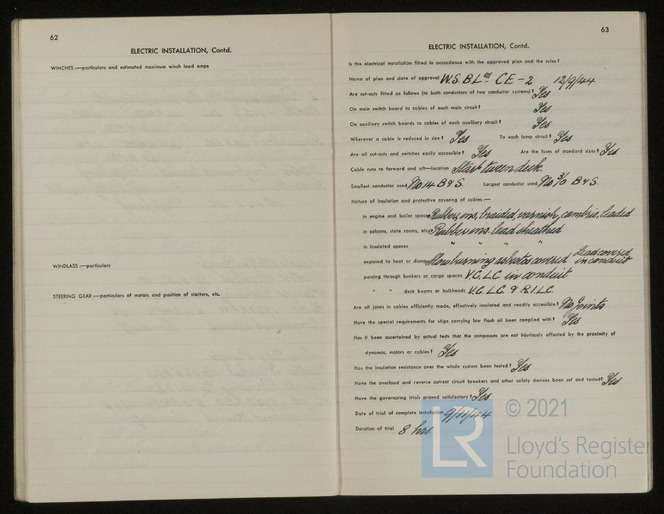 62
ELECTRIC INSTALLATION, Contd.
WINCHES :—particulars and estimated maximum winch load amps
WINDLASS :—particulars
STEERING GEAR :—particulars of motors and position of starters, etc.
63
ELECTRIC INSTALLATION, Contd.
Is the electrical installation fitted in accordance with the approved plan and the rules?
Name of plan and date of approval W.S.B.Ltd CE-2 12/9/44
Are cut-outs fitted as follows (to both conductors of two conductor systems)? Yes
On main switch board to cables of each main circuit? Yes
On auxiliary switch boards to cables of each auxiliary circuit? Yes
Wherever a cable is reduced in size? Yes To each lamp circuit? Yes
Are all cut-outs and switches easily accessible? Yes Are the fuses of standard sizes? Yes
Cable runs to forward and aft—location Starb tween deck
Smallest conductor used No 14 B & S. Largest conductor used No 3/0 B & S.
Nature of insulation and protective covering of cables—
in engine and boiler spaces Rubber ins, braided, varnish, cambric, leaded
in saloons, state rooms, etc. Rubber ins. lead sheathed
in insulated spaces " " " "
exposed to heat or damp Slow burning asbestos covered Lead covered in conduit
passing through bunkers or cargo spaces V.C.L.C. in conduit
" " deck beams or bulkheads V.C.L.C. & R.I.L.C.
Are all joints in cables efficiently made, effectively insulated and readily accessible? No Joints
Have the special requirements for ships carrying low flash oil been complied with? Yes
Has it been ascertained by actual tests that the compasses are not injuriously affected by the proximity of
dynamos, motors or cables? Yes
Has the insulation resistance over the whole system been tested? Yes
Have the overload and reverse current circuit breakers and other safety devices been set and tested? Yes
Have the governoring trials proved satisfactory? Yes
Date of trial of complete installation 9/11/44
Duration of trial 8 hrs
LR
© 2021
Lloyd's Register
Foundation